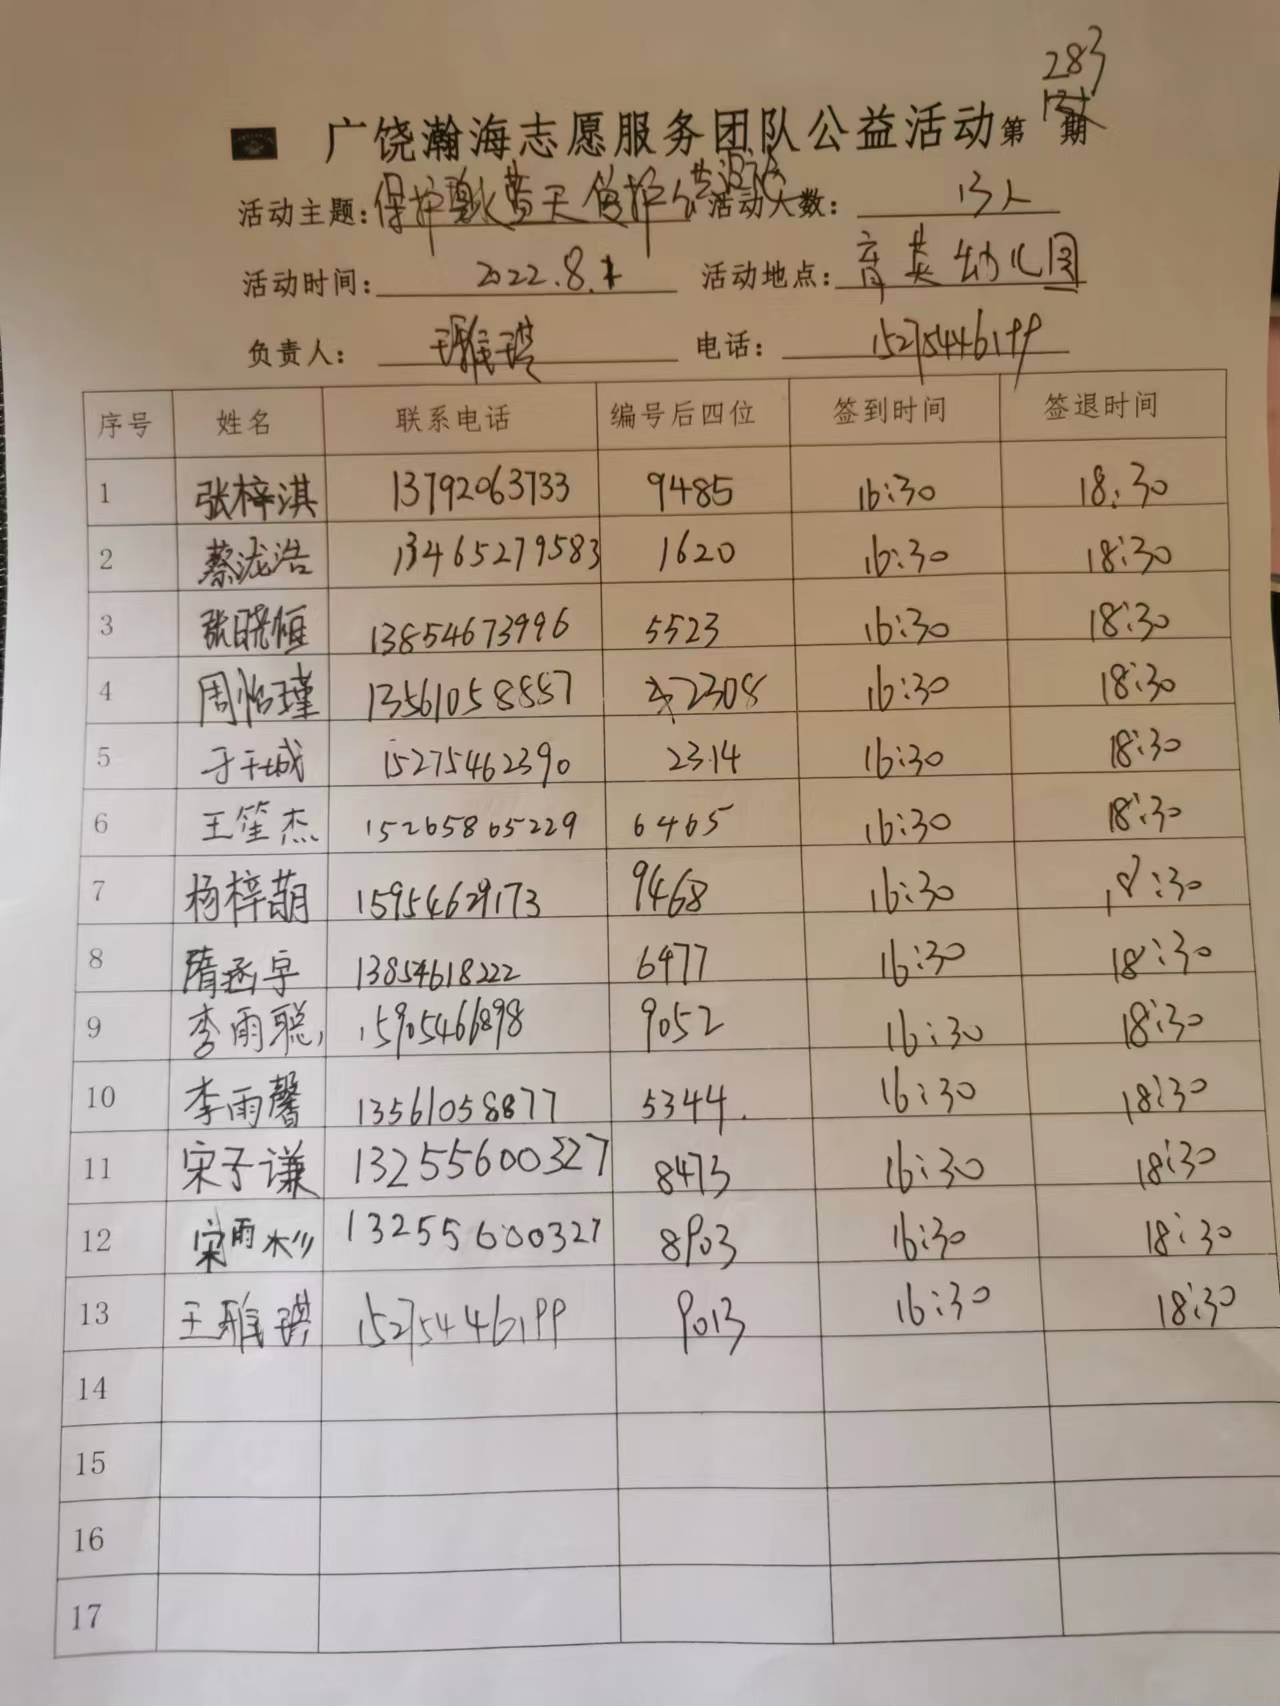 283
广饶瀚海志愿服务团队公益活动第 期
活动主题: 保护碧水蓝天 维护公共设施 活动人数: 13人
活动时间: 2022.8.1 活动地点: 育英幼儿园
负责人: 王雅琪 电话: 15275446199
序号 姓名 联系电话 编号后四位 签到时间 签退时间
1 张梓淇 13792063733 9485 16:30 18:30
2 蔡泷浩 13465279583 1620 16:30 18:30
3 张晓恒 13854673996 5523 16:30 18:30
4 周怡瑾 13561058887 2308 16:30 18:30
5 于千城 15275462390 2314 16:30 18:30
6 王笙杰 15265865229 6465 16:30 18:30
7 杨梓萌 15954629173 9468 16:30 18:30
8 隋函宇 13854618222 6977 16:30 18:30
9 李雨聪 15905466898 9052 16:30 18:30
10 李雨馨 13561058877 5344. 16:30 18:30
11 宋子谦 13255600327 8473 16:30 18:30
12 宋雨杉 13255600327 8903 16:30 18:30
13 王雅琪 15275446199 9013 16:30 18:30
14
15
16
17